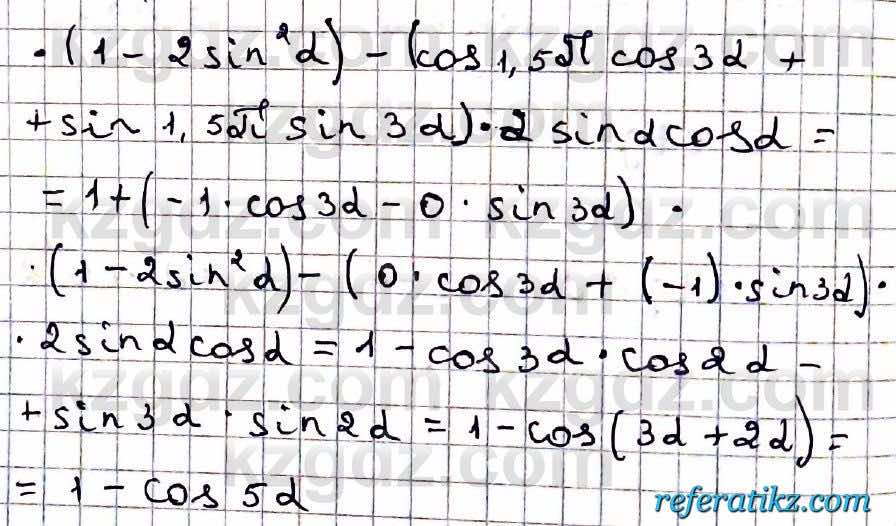 · (1 - 2 sin²α) - (cos 1,5π cos 3α +
+ sin 1,5π sin 3α) · 2 sinα cosα =
= 1 + (-1 · cos 3α - 0 · sin 3α) ·
· (1 - 2 sin²α) - (0 · cos 3α + (-1) · sin 3α) ·
· 2 sinα cosα = 1 - cos 3α · cos 2α -
+ sin 3α · sin 2α = 1 - cos (3α + 2α) =
= 1 - cos 5α
referatikz.com
kzgdz.com